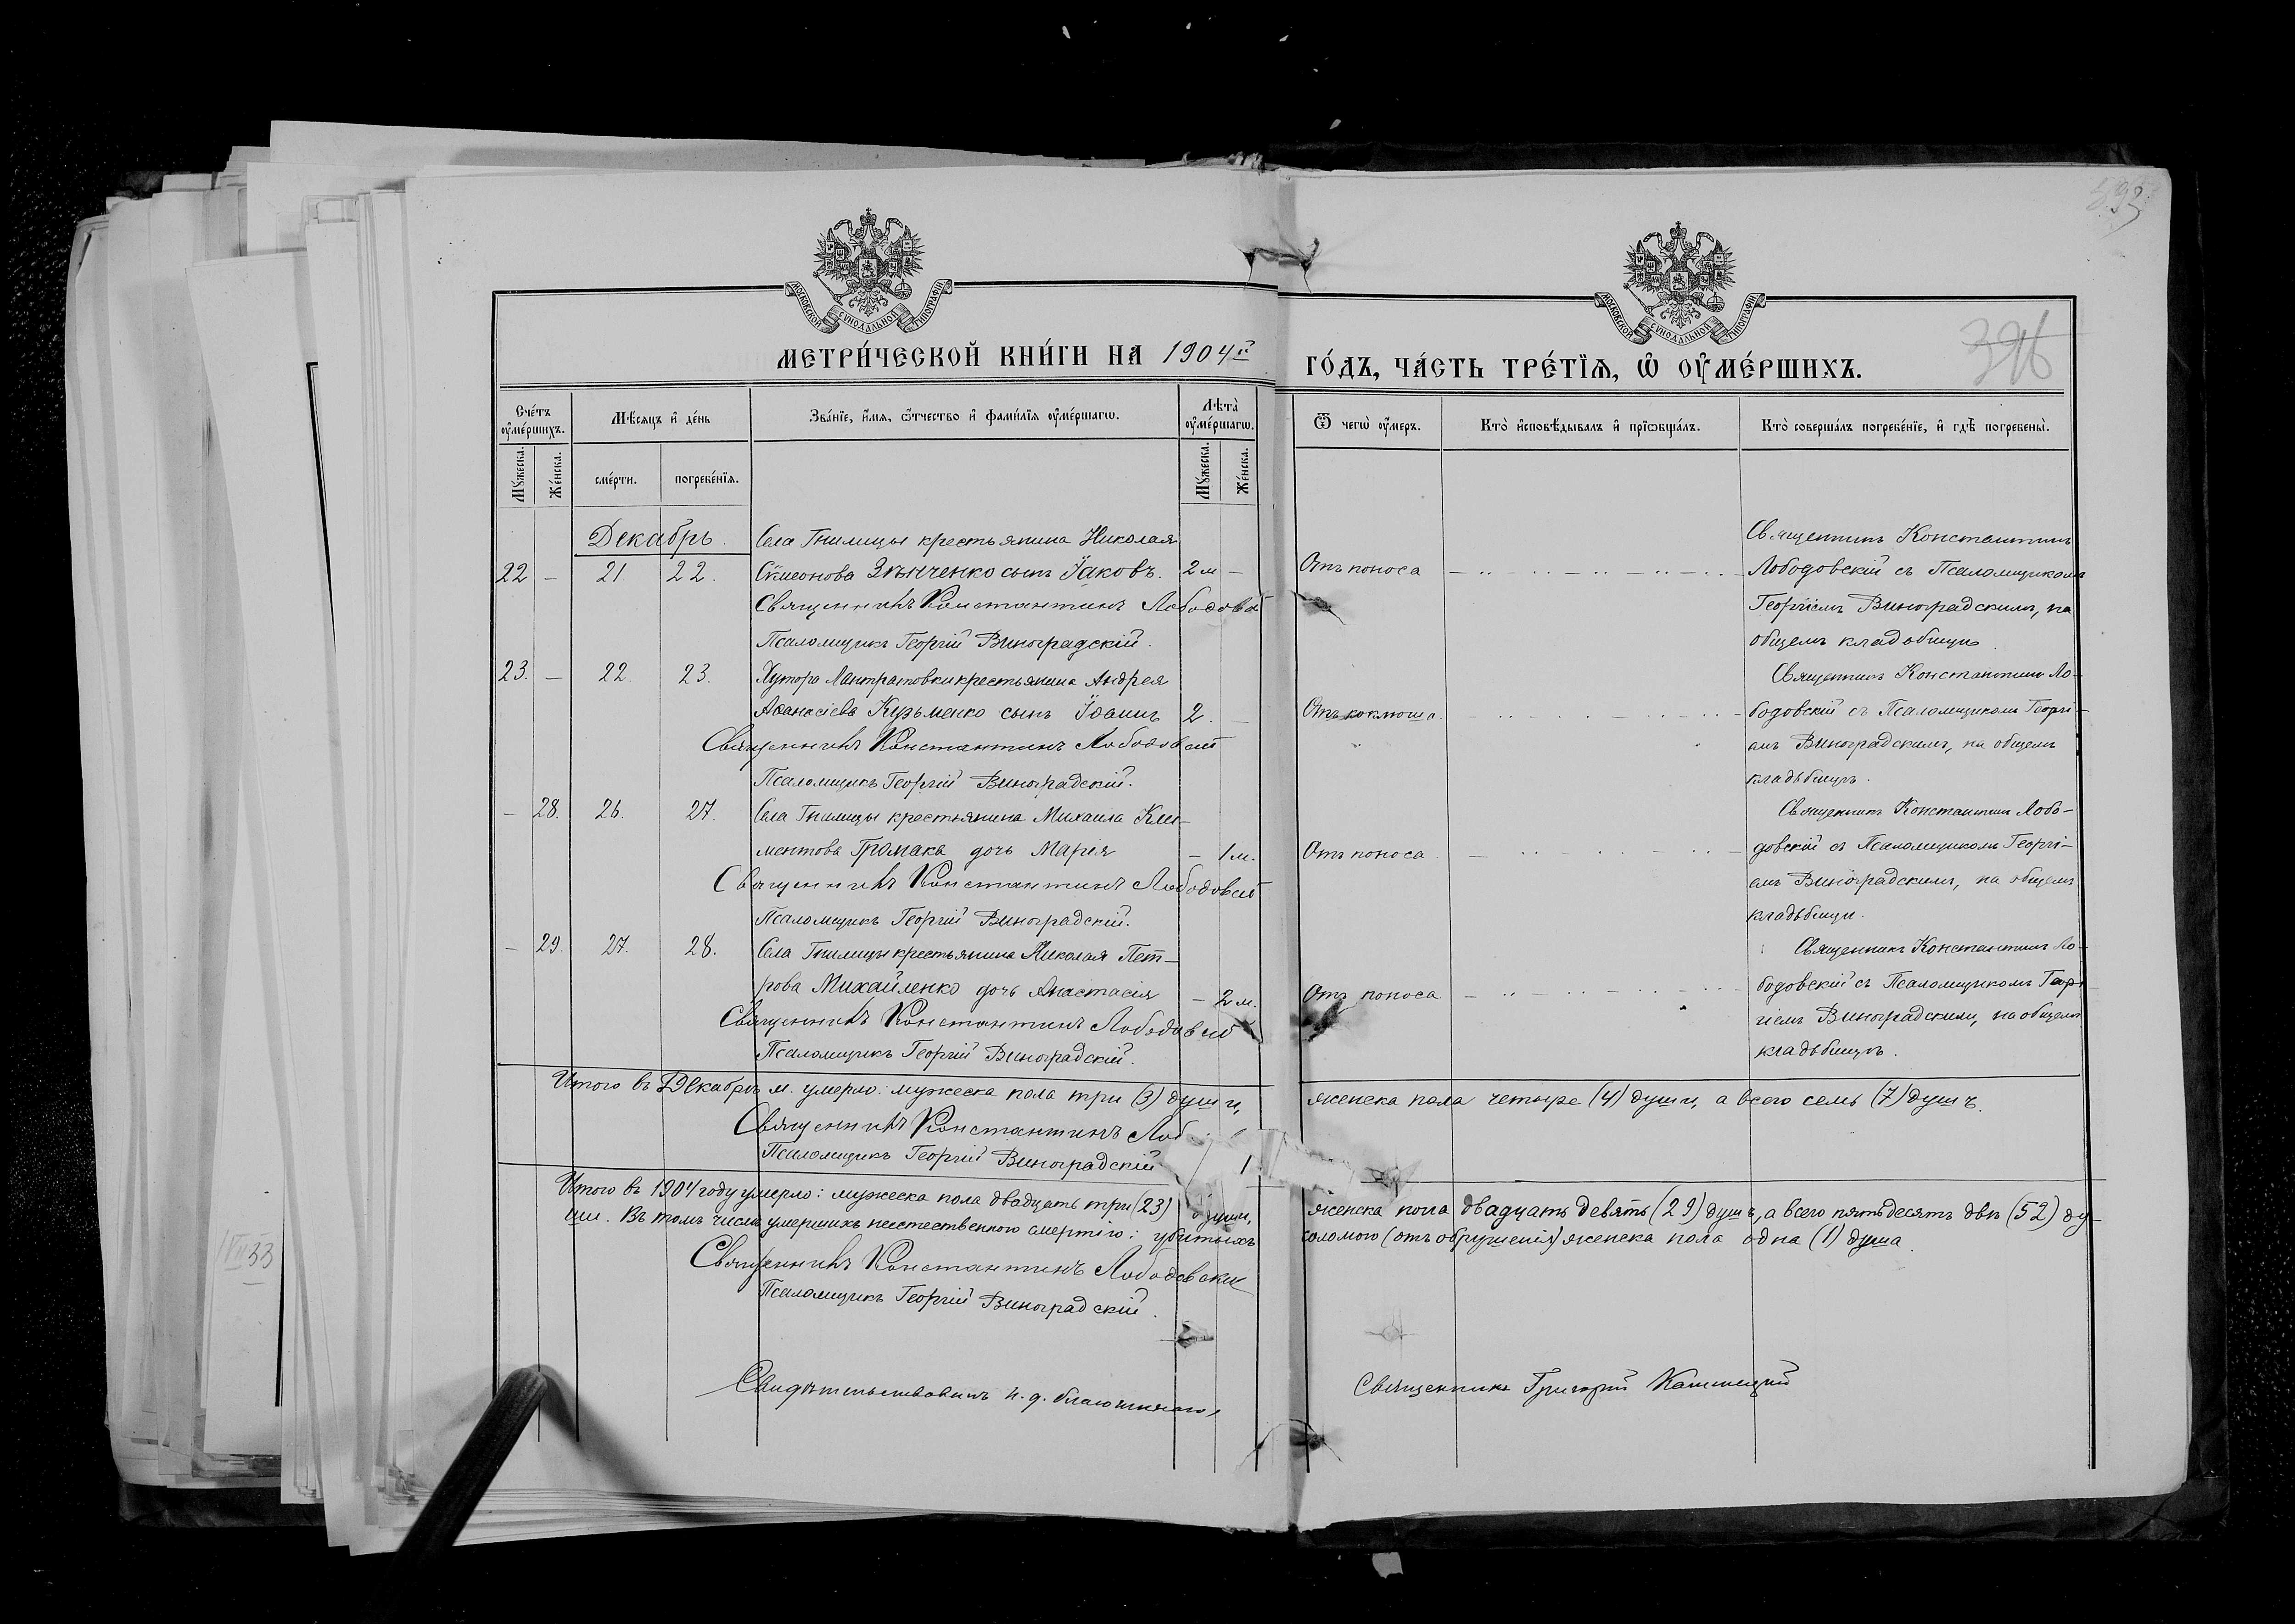 МОСКОВСКОЙ СѴНОДАЛЬНОЙ ТИПОГРАФІИ
МОСКОВСКОЙ СѴНОДАЛЬНОЙ ТИПОГРАФІИ
396
МЕТРИ́ЧЕСКОЙ КНИ́ГИ НА 1904й
ГО́ДЪ, ЧА́СТЬ ТРЕ́ТІѦ, Ѡ ОУМЕ́РШИХЪ.
Сче́тъ оуме́ршихъ.
Мꙋжеска.
Же́нска.
Мѣсѧцъ и҆ де́нь
сме́рти.
погребе́нїѧ.
Зва́нїе, и҆́мѧ, ѻ҆́тчество и҆ фами́лїѧ оуме́ршагѡ.
Лѣта̀ оуме́ршагѡ.
Мꙋжеска.
Же́нска.
Ѿ чегѡ̀ оу́меръ.
Кто̀ и҆сповѣ́дывалъ и҆ прїѡбща́лъ.
Кто̀ соверша́лъ погребе́нїе, и҆ гдѣ̀ погребены̀.
Декабрь.
22 — 21. 22.
Села Гнилицы крестьянина Николая
Сѵмеонова Зѣнченко сынъ Іаковъ. 2 м —
Священникъ Константинъ Лободовс
Псаломщикъ Георгій Виноградскій.
Отъ поноса
Священникъ Константинъ
Лободовскій съ Псаломщикомъ
Георгіемъ Виноградскимъ, на
общемъ кладбищѣ.
23. — 22. 23.
Хутора Мантратовки крестьянина Андрея
Аѳанасіева Кузьменко сынъ Іоаннъ 2. —
Священникъ Константинъ Лободовскій
Псаломщикъ Георгій Виноградскій.
Отъ коклюша.
Священникъ Константинъ Ло-
бодовскій съ Псаломщикомъ Георгі-
емъ Виноградскимъ, на общемъ
кладбищѣ.
— 28. 26. 27.
Села Гнилицы крестьянина Михаила Кли-
ментова Громака дочь Марія — 1 м.
Священникъ Константинъ Лободовскій
Псаломщикъ Георгій Виноградскій.
Отъ поноса
Священникъ Константинъ Лобо-
довскій съ Псаломщикомъ Георгі-
емъ Виноградскимъ, на общемъ
кладбищѣ.
— 29. 27. 28.
Села Гнилицы крестьянина Николая Пет-
рова Михайленко дочь Анастасія — 2 м.
Священникъ Константинъ Лободовскій
Псаломщикъ Георгій Виноградскій.
Отъ поноса
Священникъ Константинъ Ло-
бодовскій съ Псаломщикомъ Геор-
гіемъ Виноградскимъ, на общемъ
кладбищѣ.
Итого въ Декабрѣ м. умерло: мужеска пола три (3) души, женска пола четыре (4) души, а всего семь (7) душъ.
Священникъ Константинъ Лоб
Псаломщикъ Георгій Виноградскій
Итого въ 1904 году умерло: мужеска пола двадцать три (23) души, женска пола двадцать девять (29) душъ, а всего пятьдесятъ двѣ (52) ду-
ши. Въ томъ числѣ умершихъ неестественною смертію: убитыхъ соломою (отъ обрушенія) женска пола одна (1) душа.
Священникъ Константинъ Лободовскій
Псаломщикъ Георгій Виноградскій.
Свидѣтельствовалъ и. д. благочиннаго, Священникъ Григорій
VIII 33